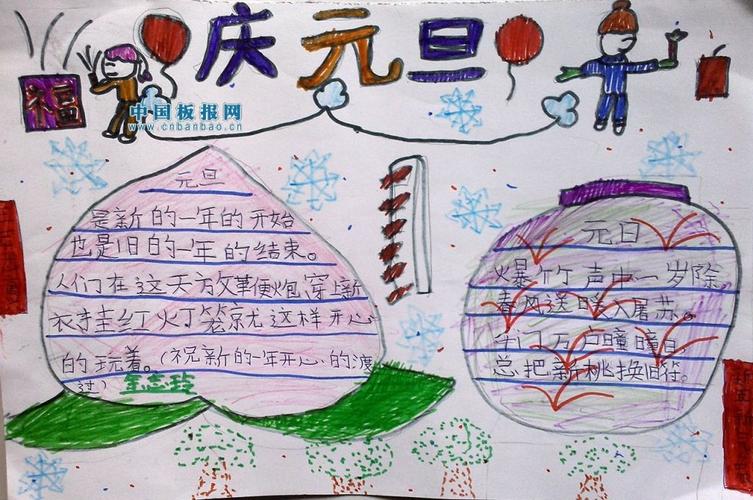 庆元旦
福
中国板报网
www.cnbanbao.cn
元旦
是新的一年的开始
也是旧的一年的结束。
人们在这天放革便炮穿上新
衣挂红灯笼就这样开心
的玩着。(祝新的一年开心的渡
过)
元旦
爆竹声中一岁除
春风送暖入屠苏。
千门万户曈曈日
总把新桃换旧符。